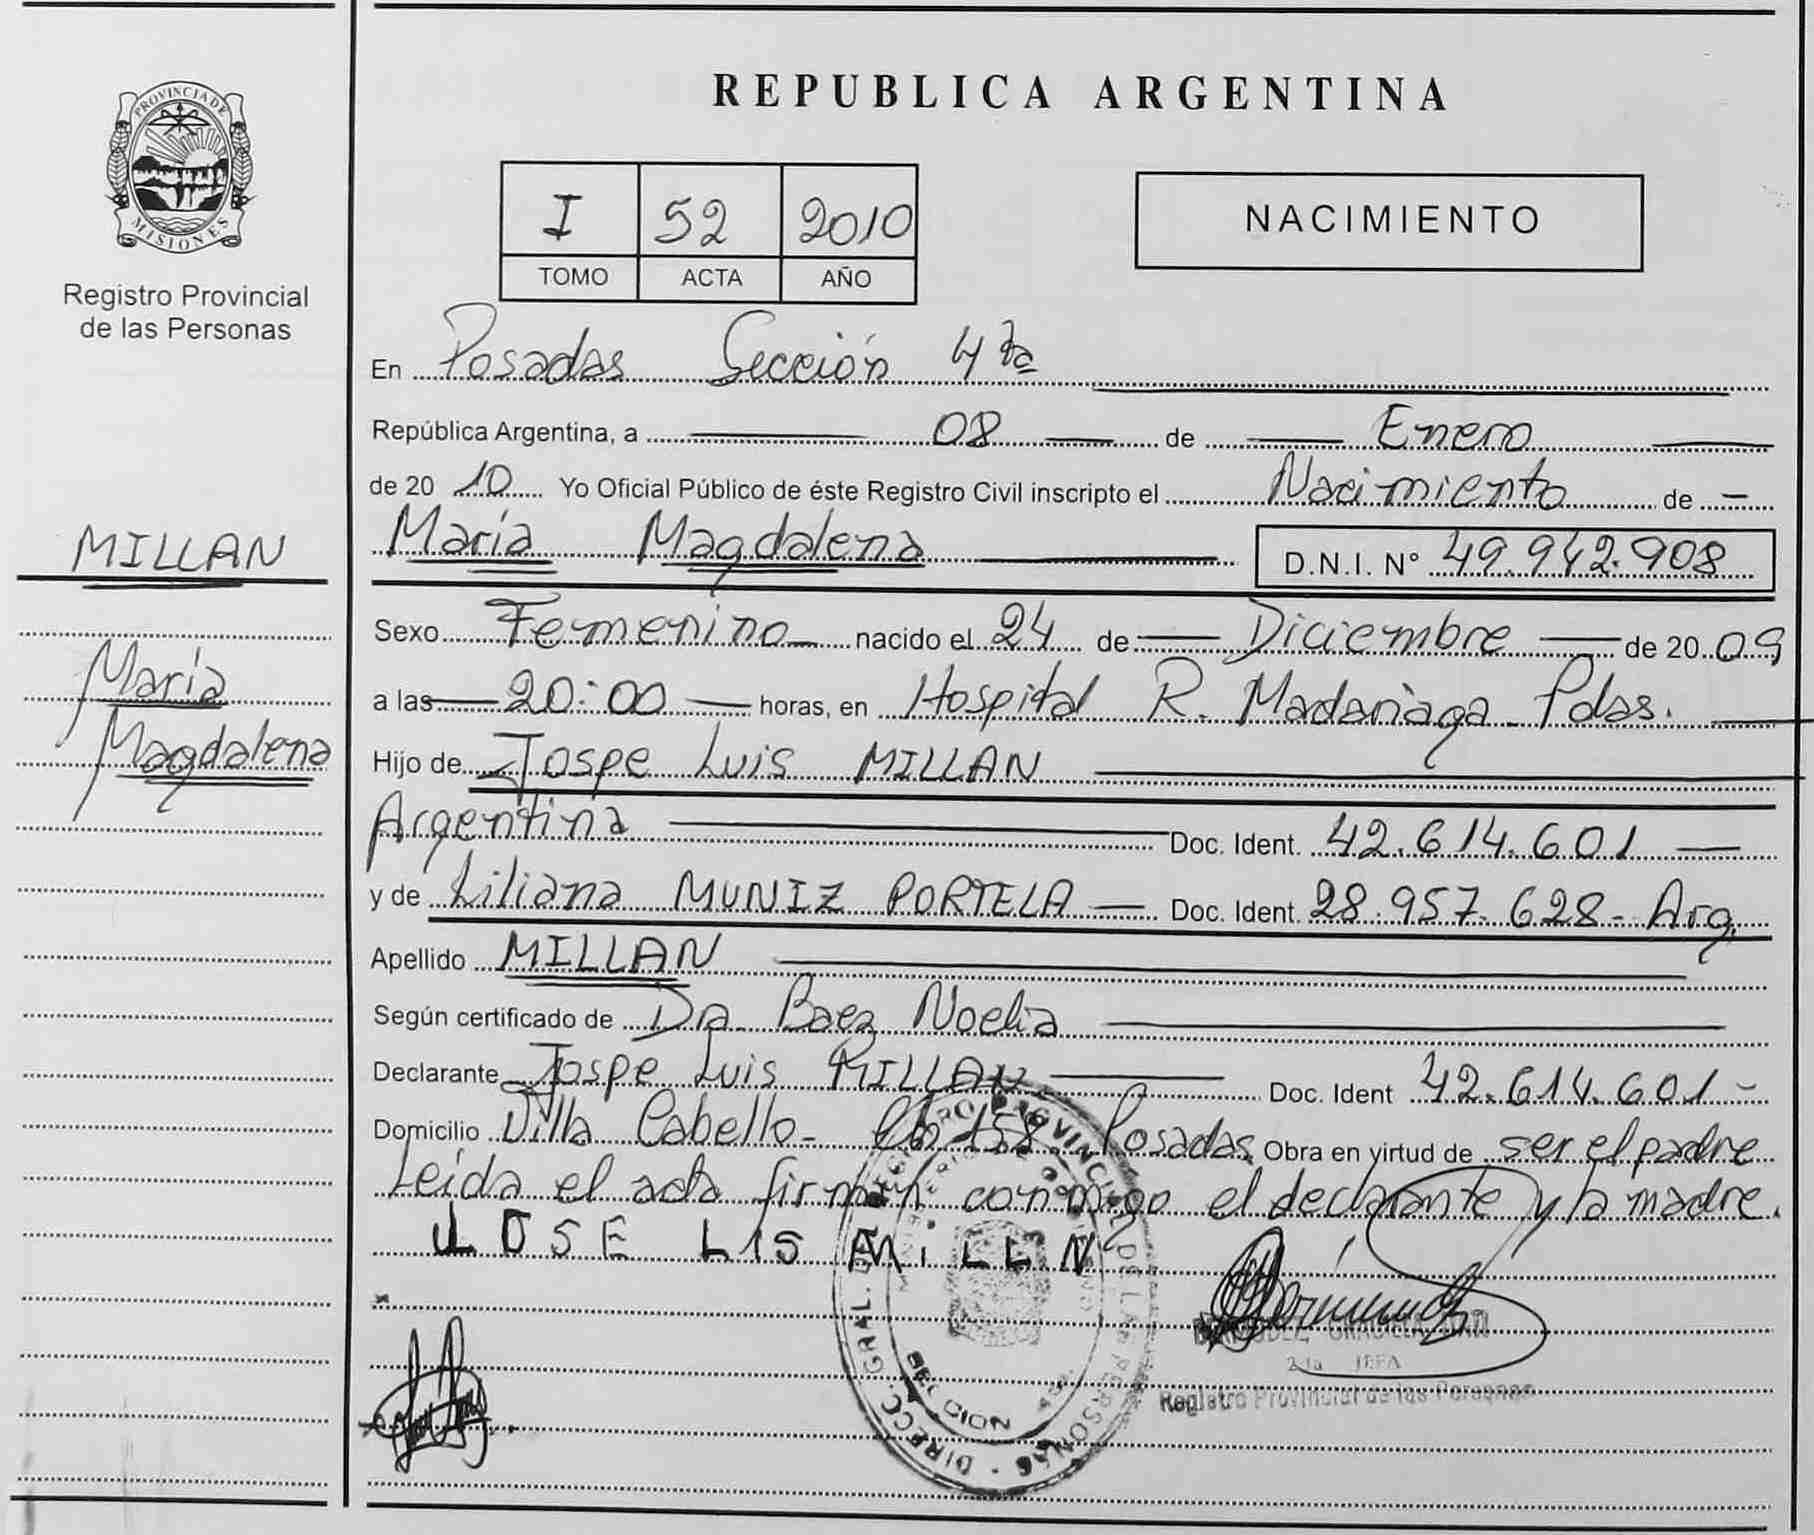 PROVINCIA DE
MISIONES
Registro Provincial
de las Personas
MILLAN
María
Magdalena
REPUBLICA ARGENTINA
I 52 2010
TOMO ACTA AÑO
NACIMIENTO
En Posadas Sección 4ta
República Argentina, a 08 de Enero
de 20 10 Yo Oficial Público de éste Registro Civil inscripto el Nacimiento de
María Magdalena D.N.I. N° 49.942.908
Sexo Femenino nacido el 24 de Diciembre de 20 09
a las 20:00 horas, en Hospital R. Madariaga Pdas.
Hijo de Jospe Luis MILLAN
Argentina Doc. Ident. 42.614.601
y de Liliana MUNIZ PORTELA Doc. Ident. 28.957.628 - Arg.
Apellido MILLAN
Según certificado de Dra Baez Noelia
Declarante Jospe Luis MILLAN Doc. Ident 42.614.601-
Domicilio Villa Cabello- Ch 158 Posadas Obra en virtud de ser el padre
Leída el acta firman conmigo el declarante y la madre.
JOSE LIS MILLN
DIRECC. GRAL. DEL REGISTRO PROVINCIAL DE LAS PERSONAS
2da JEFA
Registro Provincial de las Personas